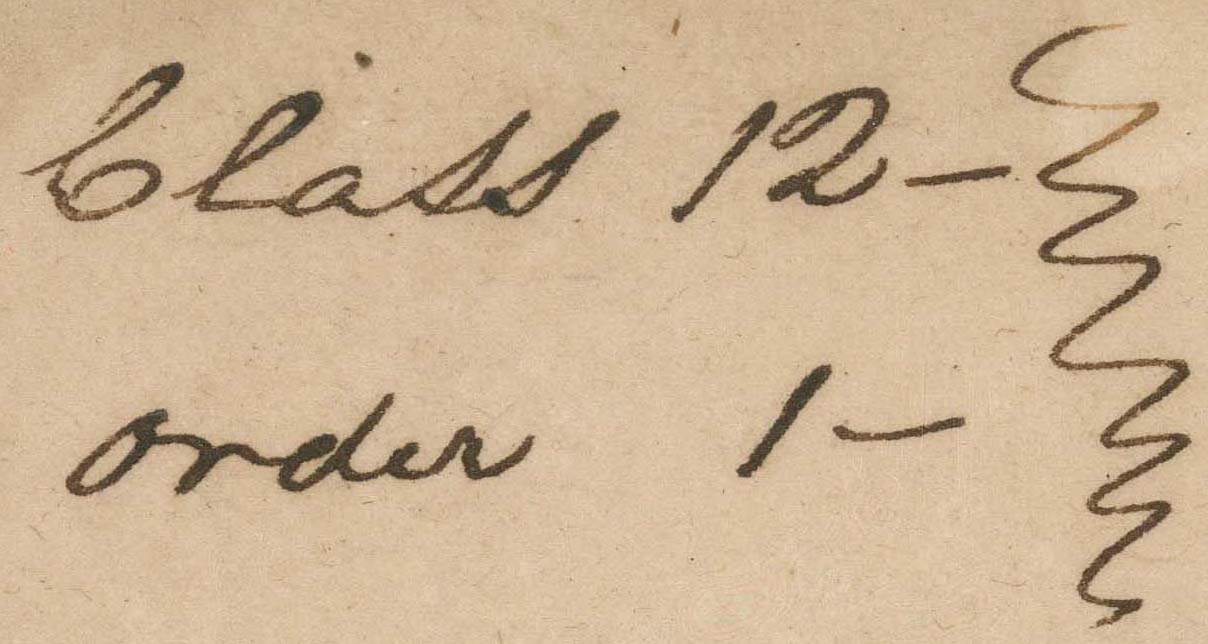 Class 12 -
order 1 -